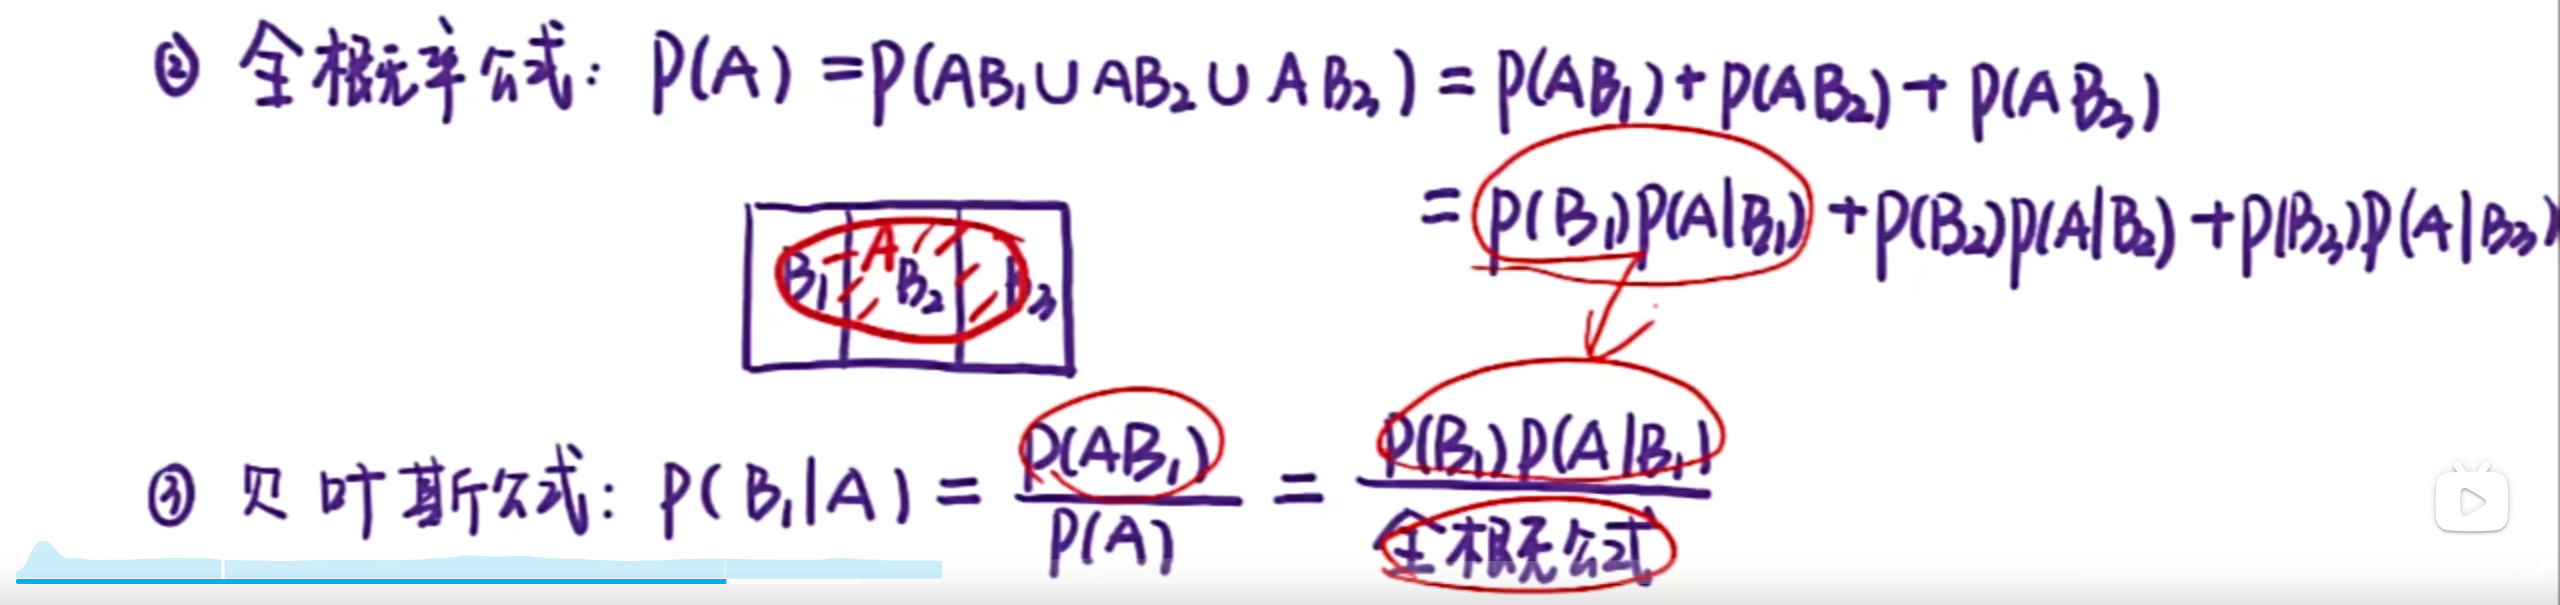 ② 全概率公式: P(A) = P(AB₁∪AB₂∪AB₃) = P(AB₁)+P(AB₂)+P(AB₃)
= P(B₁)P(A|B₁)+P(B₂)P(A|B₂)+P(B₃)P(A|B₃)
A
B₁ B₂ B₃
③ 贝叶斯公式: P(B₁|A) = P(AB₁)/P(A) = P(B₁)P(A|B₁)/全概公式